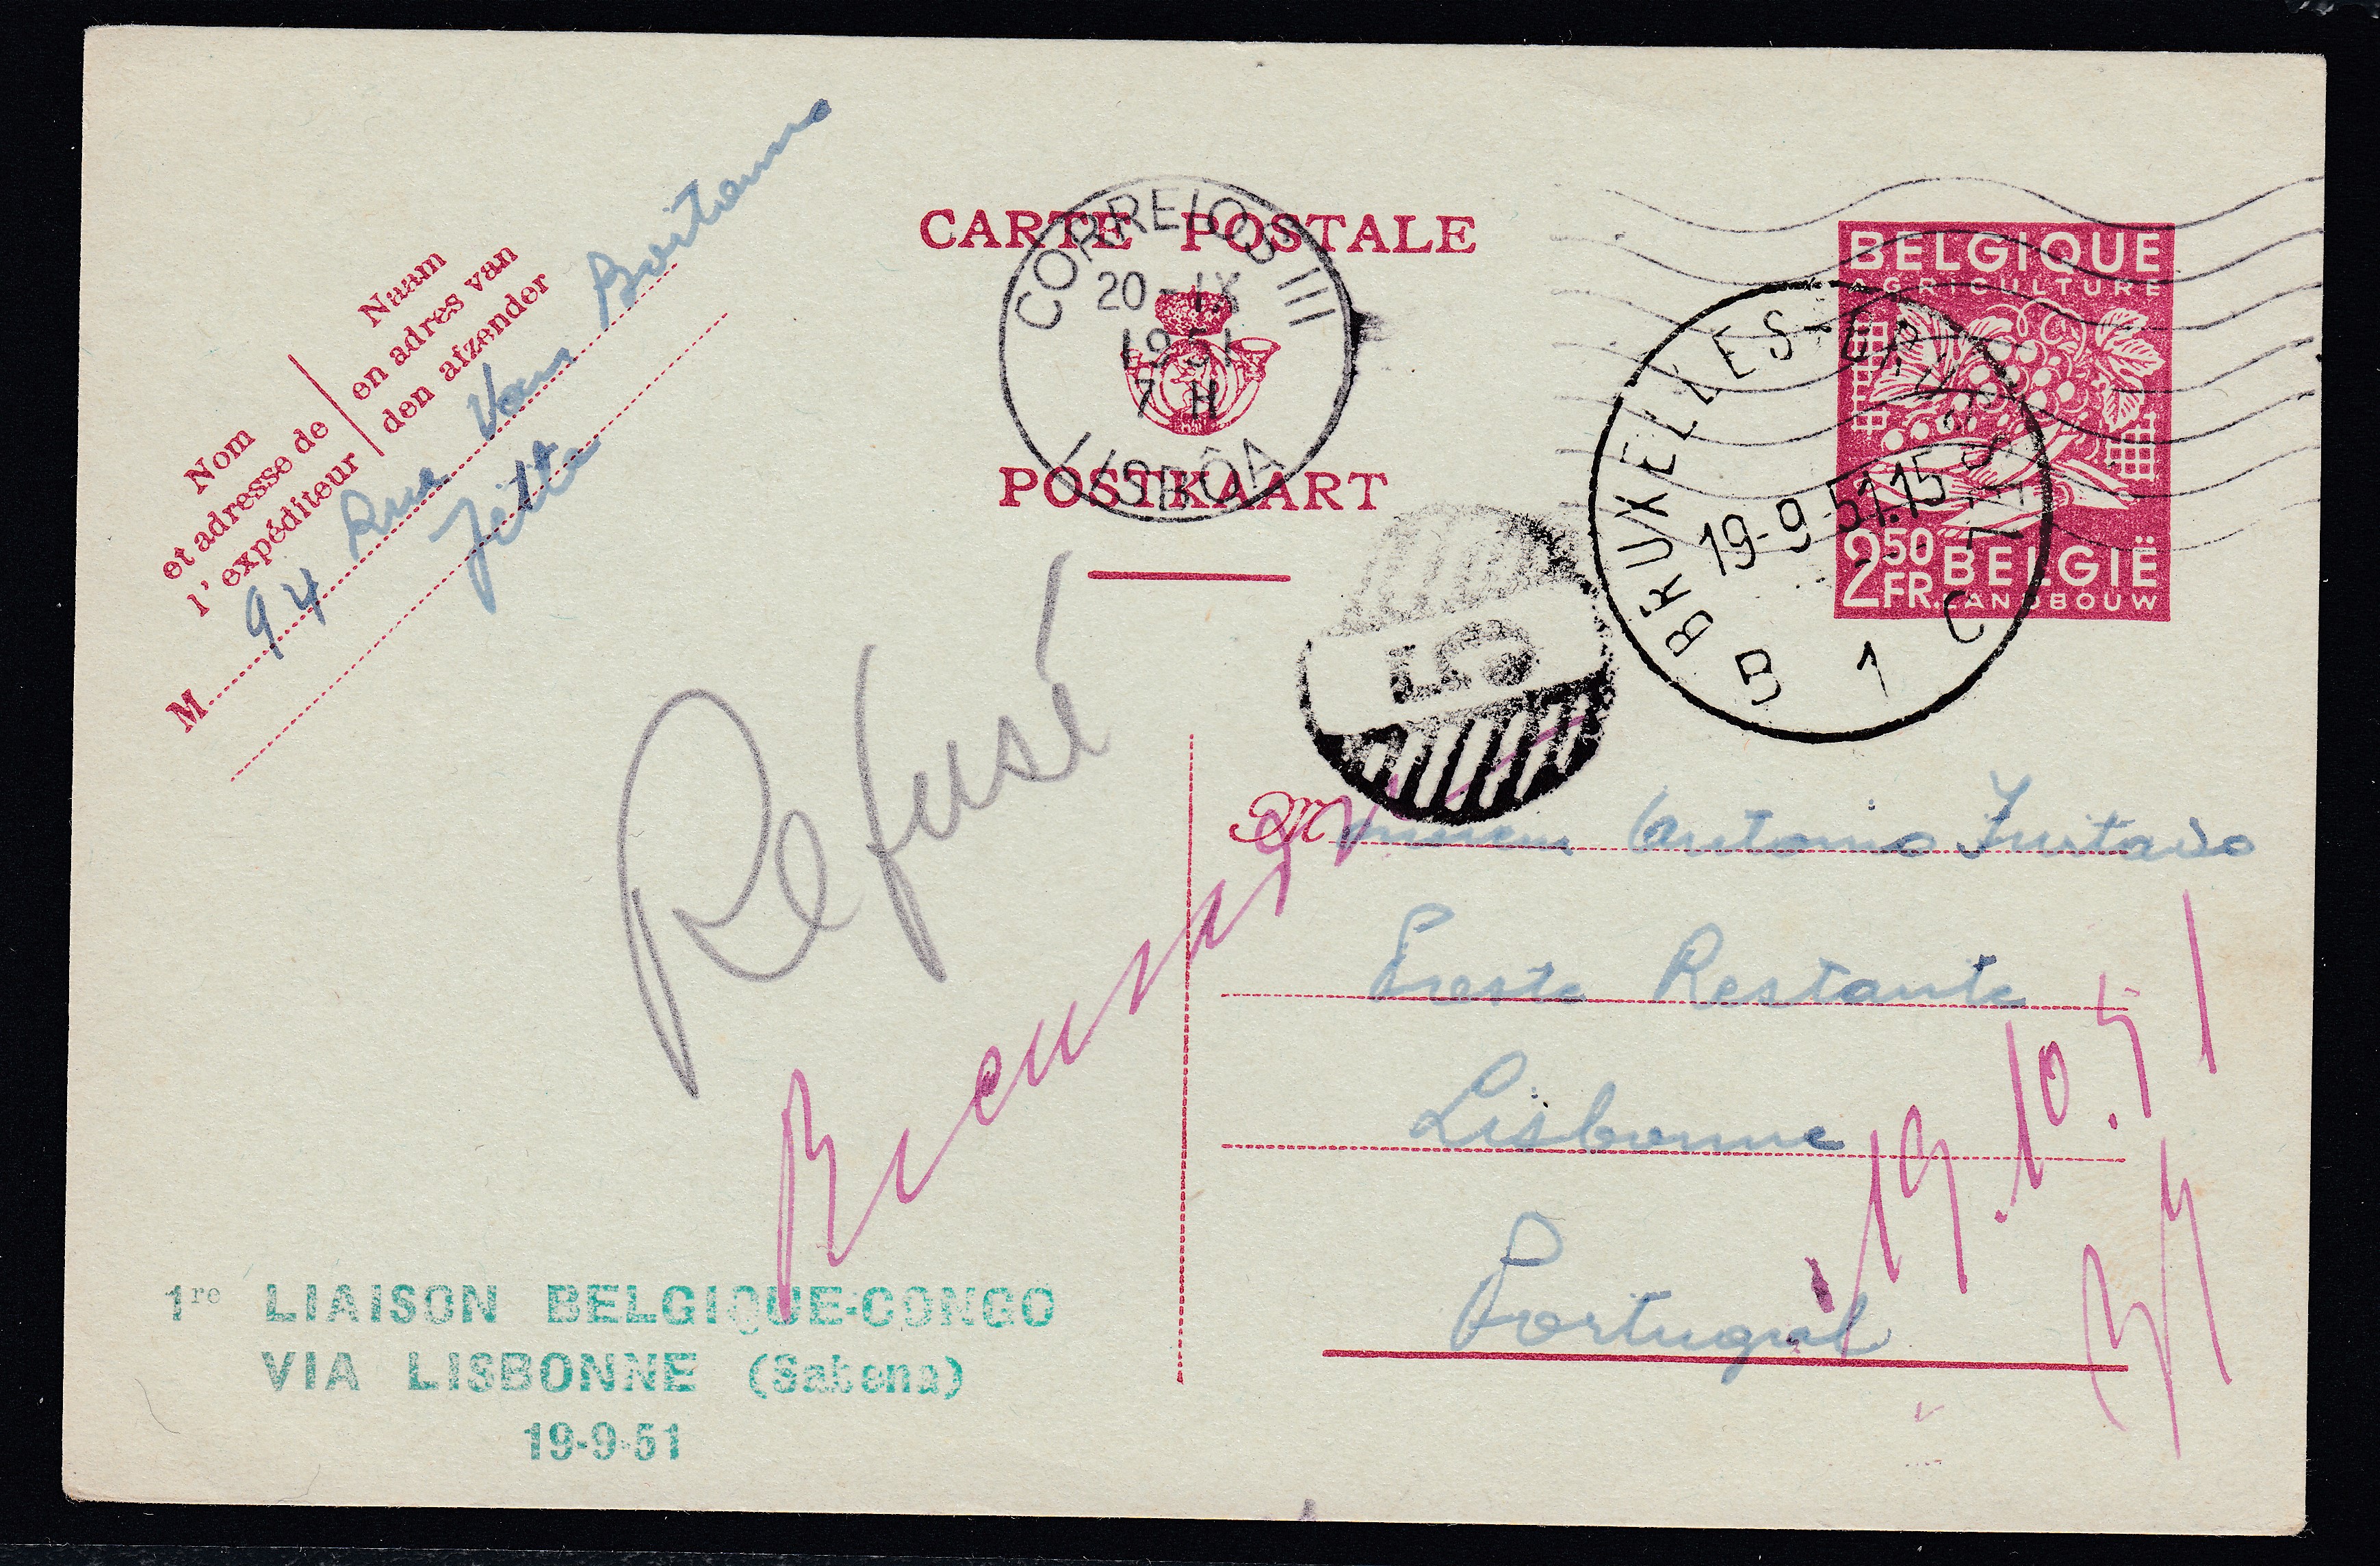 Nom
et adresse de
l'expéditeur
Naam
en adres van
den afzender
M 94 Rue Van
Jette
CARTE POSTALE
POSTKAART
CORREIOS III
20-IX
1951
7 H
LISBÔA
BELGIQUE
AGRICULTURE
2 50 FR. BELGIË
LANDBOUW
BRUXELLES-BRUSSEL
19-9-51.15
B 1 C
Refusé
Antonio Furtado
Poste Restante
Lisbonne
Portugal
19.10.51
1re LIAISON BELGIQUE-CONGO
VIA LISBONNE (Sabena)
19-9-51